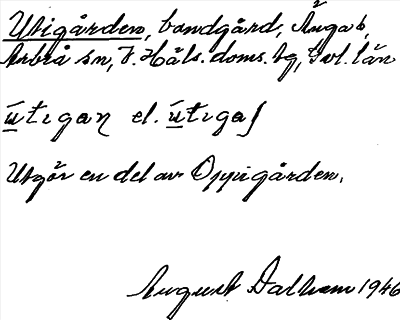 Utigården, bondgård, Änga by,
Arbrå sn, V. Häls. doms. hg, Gvl. län
útigan el. útigaſ
Utgör en del av Oppigården.
August Dalhem 1946